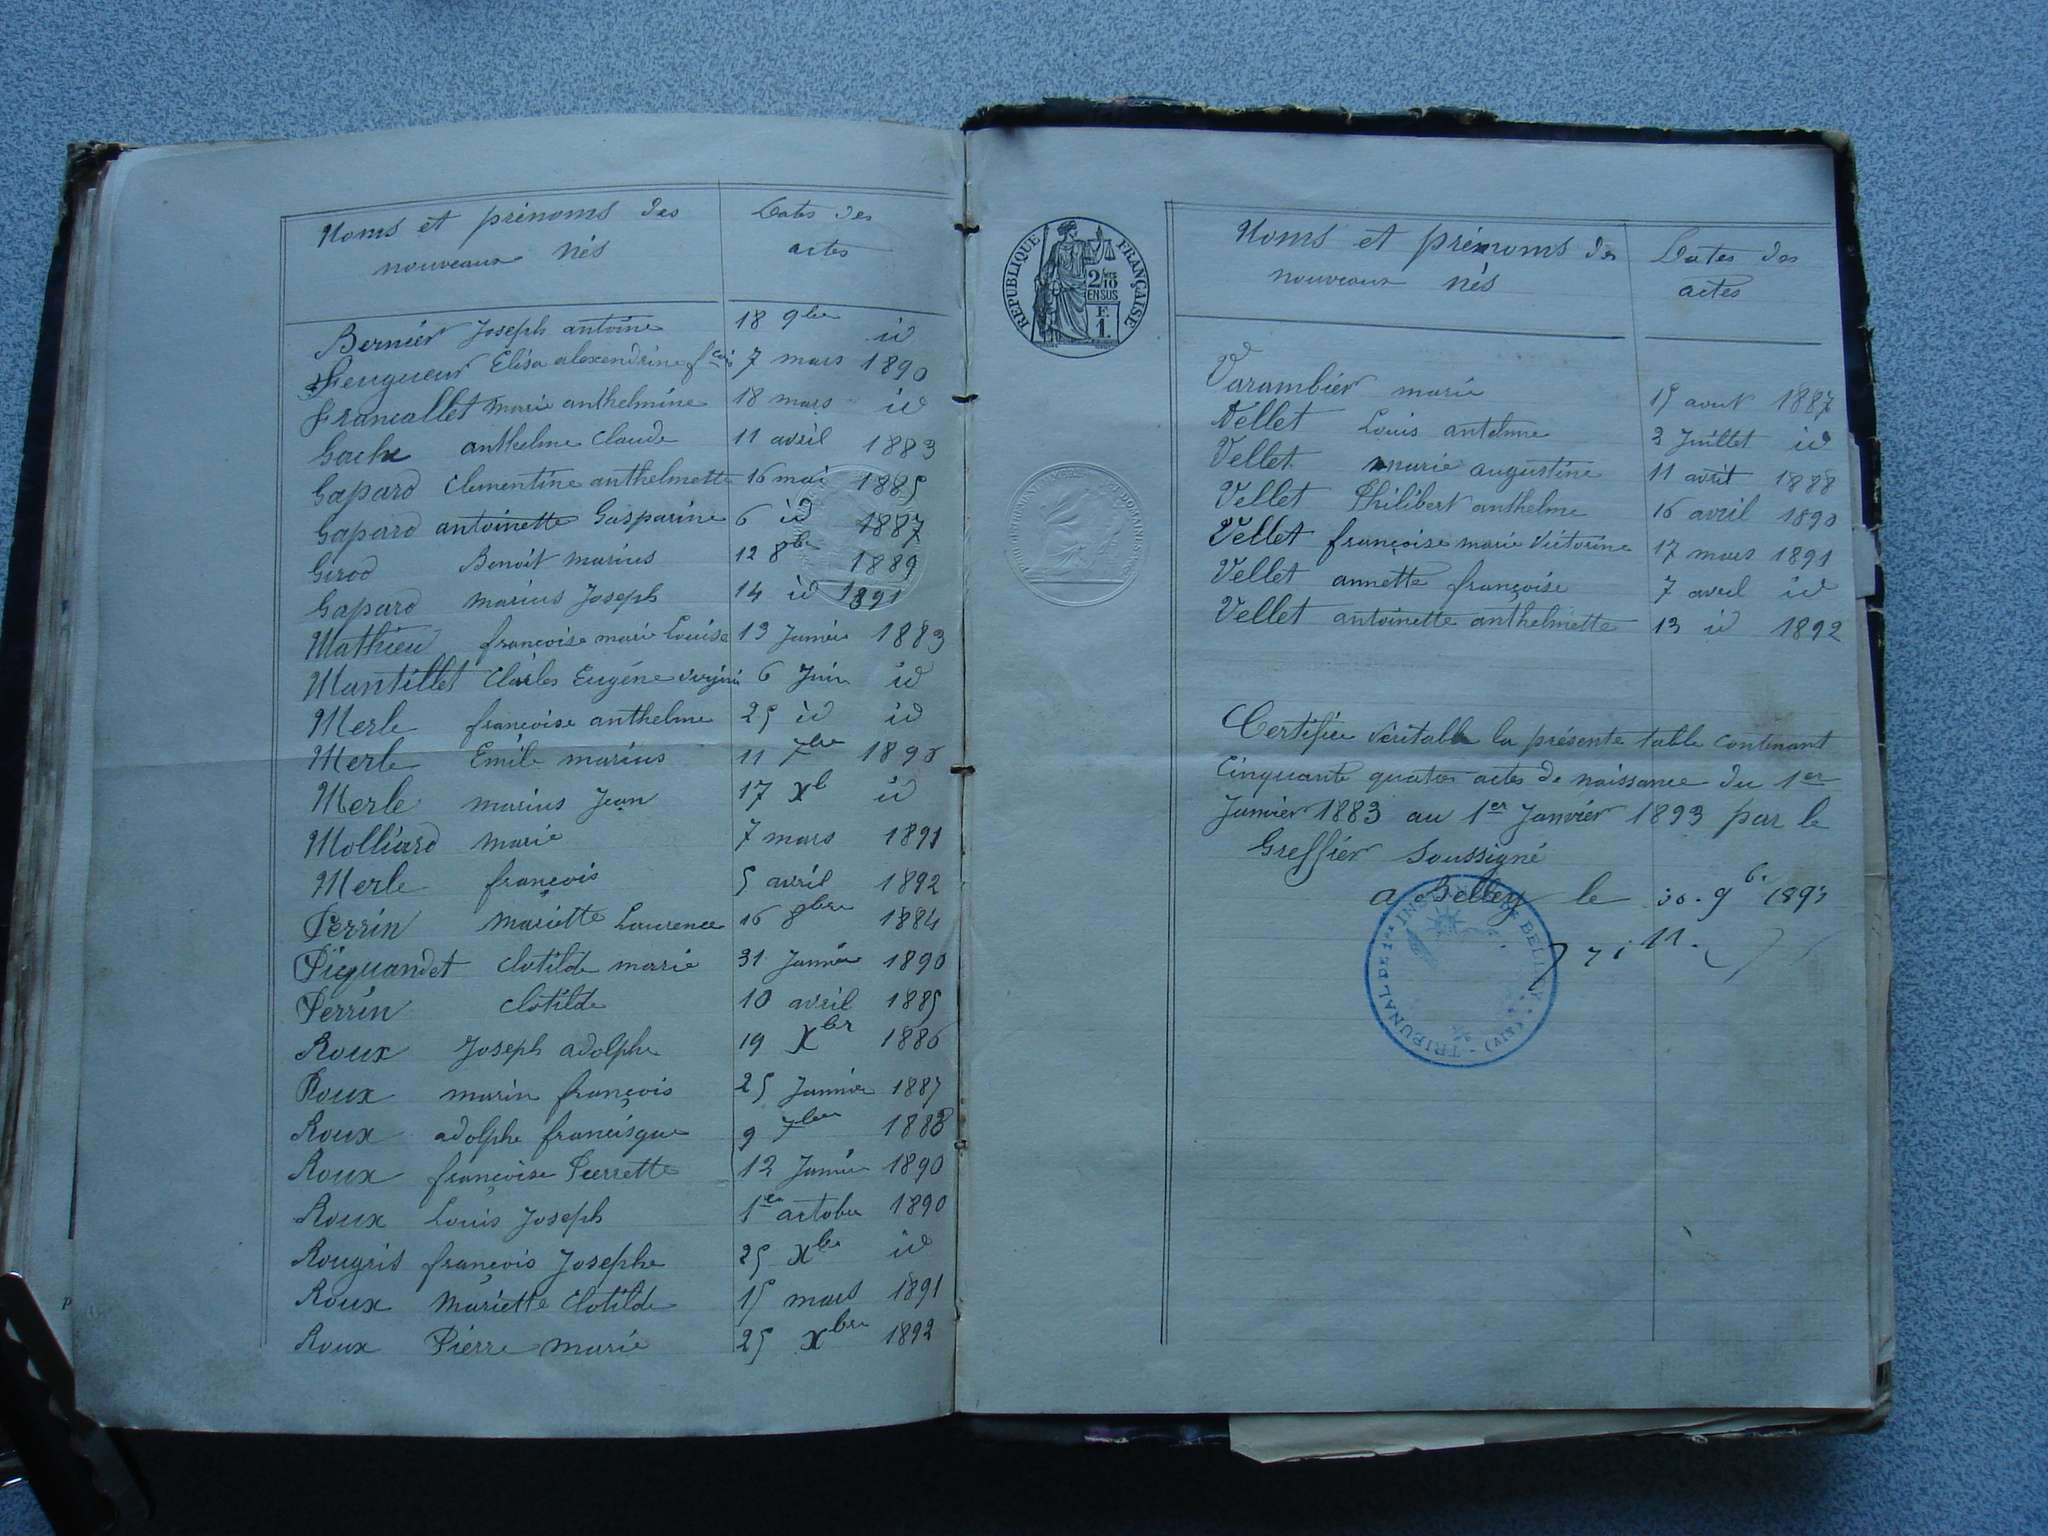 Noms et prénoms des Dates des
nouveaux nés actes
Bernier Joseph antoine 18 9bre id
Élisa alexendrine 7 mars 1890
Francallet marie anthelmine 18 mars id
Gache anthelme Claude 11 avril 1883
Gapard Clementine anthelmette 16 mai 1885
Gapard antoinette Gasparine 6 id 1887
Girod Benoit marius 12 8bre 1889
Gapard marius Joseph 14 id 1891
Mathieu françoise marie Louise 13 Janvier 1883
Mantillet Charles Eugène 6 Juin id
Merle françoise anthelme 25 id id
Merle Emile marius 11 7bre 1890
Merle marius Jean 17 Xb id
Molliard marie 7 mars 1891
Merle françois 5 avril 1892
Perrin Mariette Laurence 16 8bre 1884
Piquandet Clotilde marie 31 Janvier 1890
Perrin Clotilde 10 avril 1885
Roux Joseph adolphe 19 Xbr 1886
Roux marin françois 25 Janvier 1887
Roux adolphe francisque 9 7bre 1888
Roux françoise Pierrette 12 Janvier 1890
Roux Louis Joseph 1er octobre 1890
Rougris françois Josephe 25 Xbre id
Roux Mariette Clotilde 15 mars 1891
Roux Pierre marie 25 Xbre 1892
RÉPUBLIQUE FRANÇAISE
2/10
EN SUS
F.
1.
Noms et prénoms des Dates des
nouveaux nés actes
Varambier marie 15 aout 1887
Vellet Louis antelme 2 Juillet id
Vellet marie augustine 11 avril 1888
Vellet Philibert anthelme 16 avril 1890
Vellet françoise marie Victorine 17 mars 1891
Vellet annette françoise 7 avril id
Vellet antoinette anthelmette 13 id 1892
Certifiée véritable la présente table contenant
cinquante quatre actes de naissance du 1er
Janvier 1883 au 1er Janvier 1893 par le
Greffier Soussigné
a Belley le 9b.
TRIBUNAL DE 1re INS DE BELLEY (AIN)